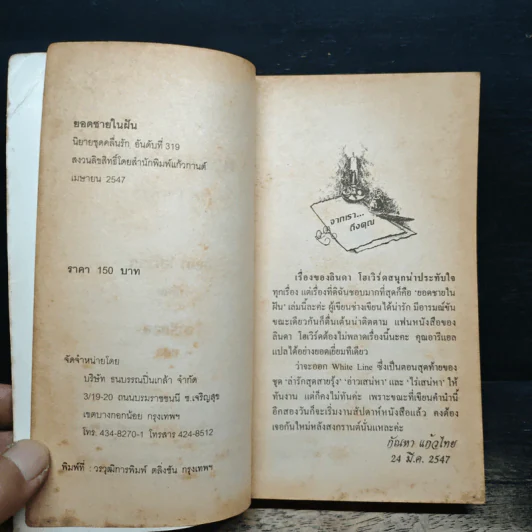 ยอดชายในฝัน
นิยายชุดคลื่นรัก อันดับที่ 319
สงวนลิขสิทธิ์โดยสำนักพิมพ์แก้วกานต์
เมษายน 2547
ราคา 150 บาท
จัดจำหน่ายโดย
บริษัท ธนบรรณปิ่นเกล้า จำกัด
3/19-20 ถนนบรมราชชนนี ซ.เจริญสุข
เขตบางกอกน้อย กรุงเทพฯ
โทร. 434-8270-1 โทรสาร 424-8512
พิมพ์ที่ : วรวุฒิการพิมพ์ ตลิ่งชัน กรุงเทพฯ
จากเรา...
ถึงคุณ
เรื่องของลินดา โฮเวิร์ดสนุกน่าประทับใจ
ทุกเรื่อง แต่เรื่องที่ดิฉันชอบมากที่สุดก็คือ 'ยอดชายใน
ฝัน' เล่มนี้ละค่ะ ผู้เขียนช่างเขียนได้น่ารัก มีอารมณ์ขัน
ขณะเดียวกันก็ตื่นเต้นน่าติดตาม แฟนหนังสือของ
ลินดา โฮเวิร์ดต้องไม่พลาดเรื่องนี้นะคะ คุณอารีแอล
แปลได้อย่างยอดเยี่ยมทีเดียว
ว่าจะออก White Line ซึ่งเป็นตอนสุดท้ายของ
ชุด 'ล่ารักสุดสายรุ้ง' 'อ่าวเสน่หา' และ 'ไร่เสน่หา' ให้
ทันงาน แต่ก็คงไม่ทันค่ะ เพราะขณะที่เขียนคำนำนี้
อีกสองวันก็จะเริ่มงานสัปดาห์หนังสือแล้ว คงต้อง
เจอกันใหม่หลังสงกรานต์นั่นแหละค่ะ
กัณหา แก้วไทย
24 มี.ค. 2547